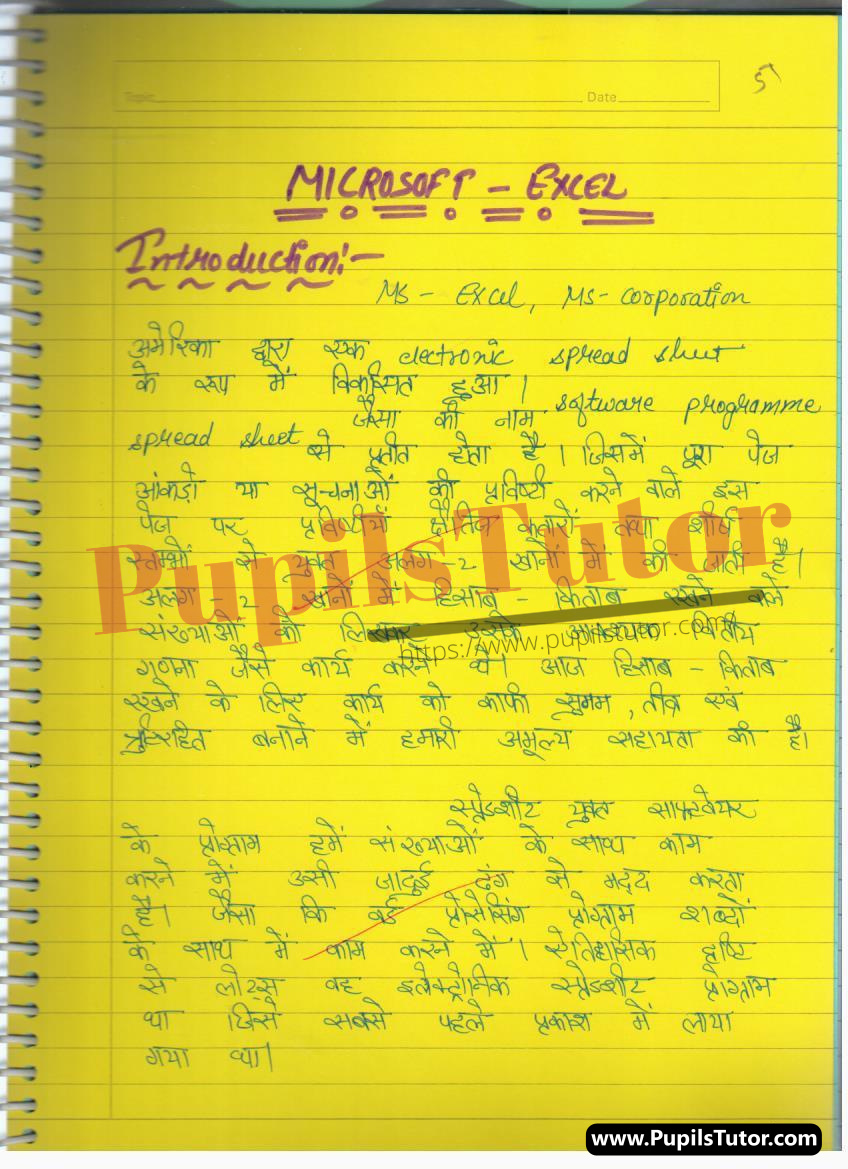 5
Topic Date
MICROSOFT - EXCEL
Introduction:-
Ms - Excel, Ms- corporation
अमेरिका द्वारा एक electronic spread sheet
के रूप में विकसित हुआ।
जैसा की नाम software programme
spread sheet से प्रतीत होता है। जिसमें पूरा पेज
आंकड़ो या सूचनाओं की प्रविष्टी करने वाले इस
पेज पर प्रविष्टीयां क्षैतिज कतारों तथा शीर्ष
स्तम्भों से युक्त अलग-2 खानों में की जाती है।
अलग-2 खानों में हिसाब - किताब रखने वाले
संख्याओं को लिखकर उसके वितीय
गणना जैसे कार्य करने थे। आज हिसाब - किताब
रखने के लिए कार्य को काफी सुगम, तीव्र एवं
त्रुटिरहित बनाने में हमारी अमूल्य सहायता की है।
स्प्रेडशीट युक्त साफ्टवेयर
के प्रोग्राम हमें संख्याओं के साथ काम
करने में उसी जादुई ढंग से मदद करता
है। जैसा कि वर्ड प्रोसेसिंग प्रोग्राम शब्दों
के साथ में काम करने में। ऐतिहासिक दृष्टि
से लोटस वह इलेक्ट्रोनिक स्प्रेडशीट प्रोग्राम
था जिसे सबसे पहले प्रकाश में लाया
गया था।
PupilsTutor
https://www.pupilstutor.com/
www.PupilsTutor.com